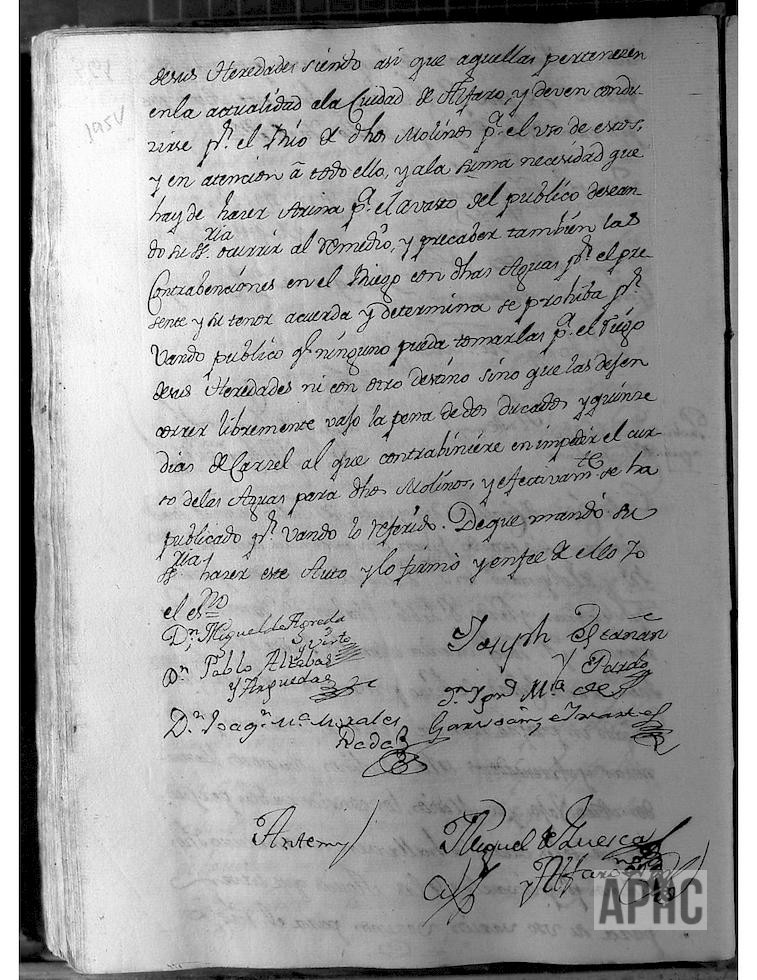 195v
desus Heredades siendo asi que aquellas pertenezen
enla actualidad ala Ciudad de Alfaro, y deven condu-
zirse pr. el Rio de dhos Molinos pa. el uso de estos,
y en atencion â todo ello, y ala suma necesidad que
hay de hazer Arina pa. el avasto del publico desean-
do su Sria. ocurrir al remedio, y precaber tambien las
Contrabenciones en el Riego con dhas Aguas pr. el pre-
sente y su tenor acuerda y determina se prohiba pr.
Vando publico qe. ninguno pueda tomarlas pa. el Riego
desus Heredades ni con otro destino sino que las dejen
correr libremente vajo la pena de dos ducados y quinze
dias de Carzel al que contrabiniere en impedir el cur-
so delas Aguas para dhos Molinos, y efectivamte. se ha
publicado pr. Vando lo referido. Deque mandó su
Sria. hazer este Auto y lo firmó y enfee de ello Yo
el esno.
Dn. Miguel de Agreda
y
Dn. Pablo
y Arguedas
Joseph
y Pardo
Dn. Joaqn. Ma. Morales
Rada
Dn. Ygno. Ma. de
Antemy
Miguel de Huesca
y Alfaro
APHC